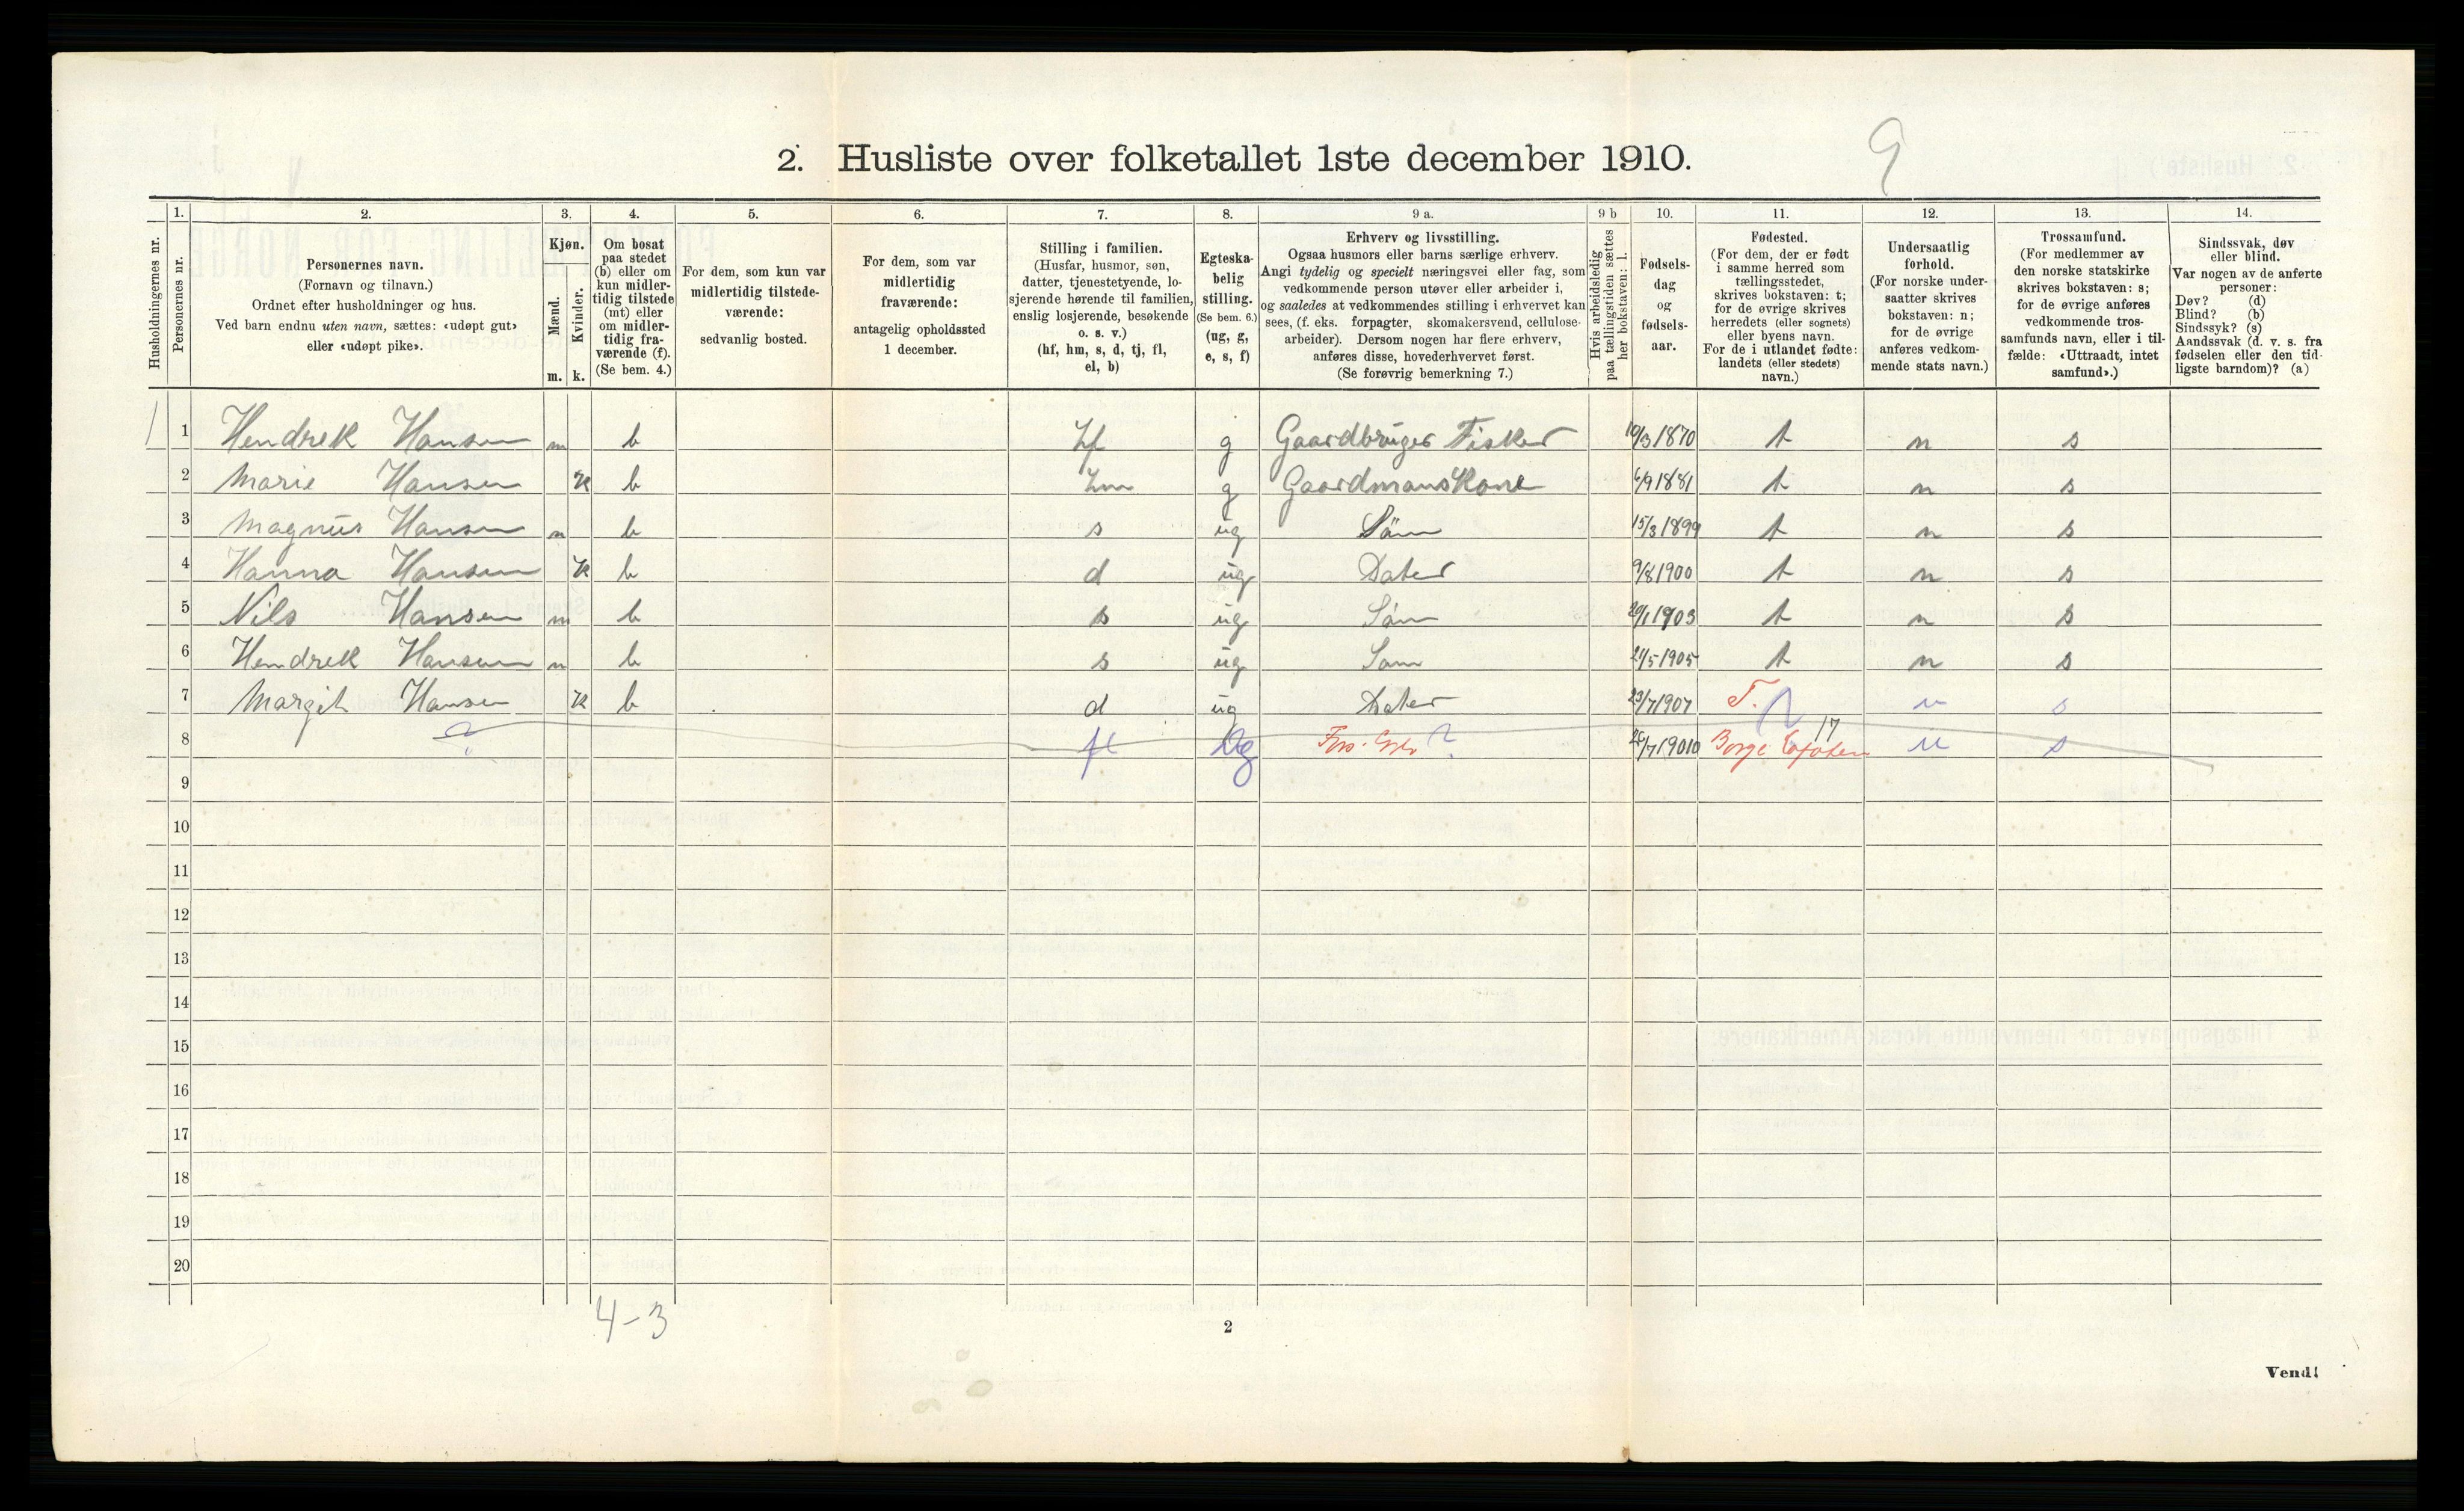 2. Husliste over folketallet 1ste december 1910.
9
1. 2. 3. 4. 5. 6. 7. 8. 9 a. 9 b 10. 11. 12. 13. 14.
Husholdningernes nr.
Personernes nr.
Personernes navn.
(Fornavn og tilnavn.)
Ordnet efter husholdninger og hus.
Ved barn endnu uten navn, sættes: «udøpt gut»
eller «udøpt pike».
Kjøn.
Mænd.
Kvinder.
m. k.
Om bosat
paa stedet
(b) eller om
kun midler-
tidig tilstede
(mt) eller
om midler-
tidig fra-
værende (f).
(Se bem. 4.)
For dem, som kun var
midlertidig tilstede-
værende:
sedvanlig bosted.
For dem, som var
midlertidig
fraværende:
antagelig opholdssted
1 december.
Stilling i familien.
(Husfar, husmor, søn,
datter, tjenestetyende, lo-
sjerende hørende til familien,
enslig losjerende, besøkende
o. s. v.)
(hf, hm, s, d, tj, fl,
el, b)
Egteska-
belig
stilling.
(Se bem. 6.)
(ug, g,
e, s, f)
Erhverv og livsstilling.
Ogsaa husmors eller barns særlige erhverv.
Angi tydelig og specielt næringsvei eller fag, som
vedkommende person utøver eller arbeider i,
og saaledes at vedkommendes stilling i erhvervet kan
sees, (f. eks. forpagter, skomakersvend, cellulose-
arbeider). Dersom nogen har flere erhverv,
anføres disse, hovederhvervet først.
(Se forøvrig bemerkning 7.)
Hvis arbeidsledig
paa tællingstiden sættes
her bokstaven: l.
Fødsels-
dag
og
fødsels-
aar.
Fødested.
(For dem, der er født
i samme herred som
tællingsstedet,
skrives bokstaven: t;
for de øvrige skrives
herredets (eller sognets)
eller byens navn.
For de i utlandet fødte:
landets (eller stedets)
navn.)
Undersaatlig
forhold.
(For norske under-
saatter skrives
bokstaven: n;
for de øvrige
anføres vedkom-
mende stats navn.)
Trossamfund.
(For medlemmer av
den norske statskirke
skrives bokstaven: s;
for de øvrige anføres
vedkommende tros-
samfunds navn, eller i til-
fælde: «Uttraadt, intet
samfund».)
Sindssvak, døv
eller blind.
Var nogen av de anførte
personer:
Døv? (d)
Blind? (b)
Sindssyk? (s)
Aandssvak (d. v. s. fra
fødselen eller den tid-
ligste barndom)? (a)
1 1 Hendrek Hansen m b hf g Gaardbruger Fisker 10/3 1870 t n s
2 Marie Hansen K b hm g Gaardmans Kone 6/9 1881 t n s
3 Magnus Hansen m b s ug Søn 15/3 1899 t n s
4 Hanna Hansen K b d ug Dater 9/8 1900 t n s
5 Nils Hansen m b s ug Søn 20/1 1903 t n s
6 Hendrek Hansen m b s ug Søn 21/5 1905 t n s
7 Margit Hansen K b d ug Dater 23/7 1907 T. n s
8 ? fl ug ? 26/7 19010 17 Borge n s
9
10
11
12
13
14
15
16
17
18
19
20
4-3
2
Vend!